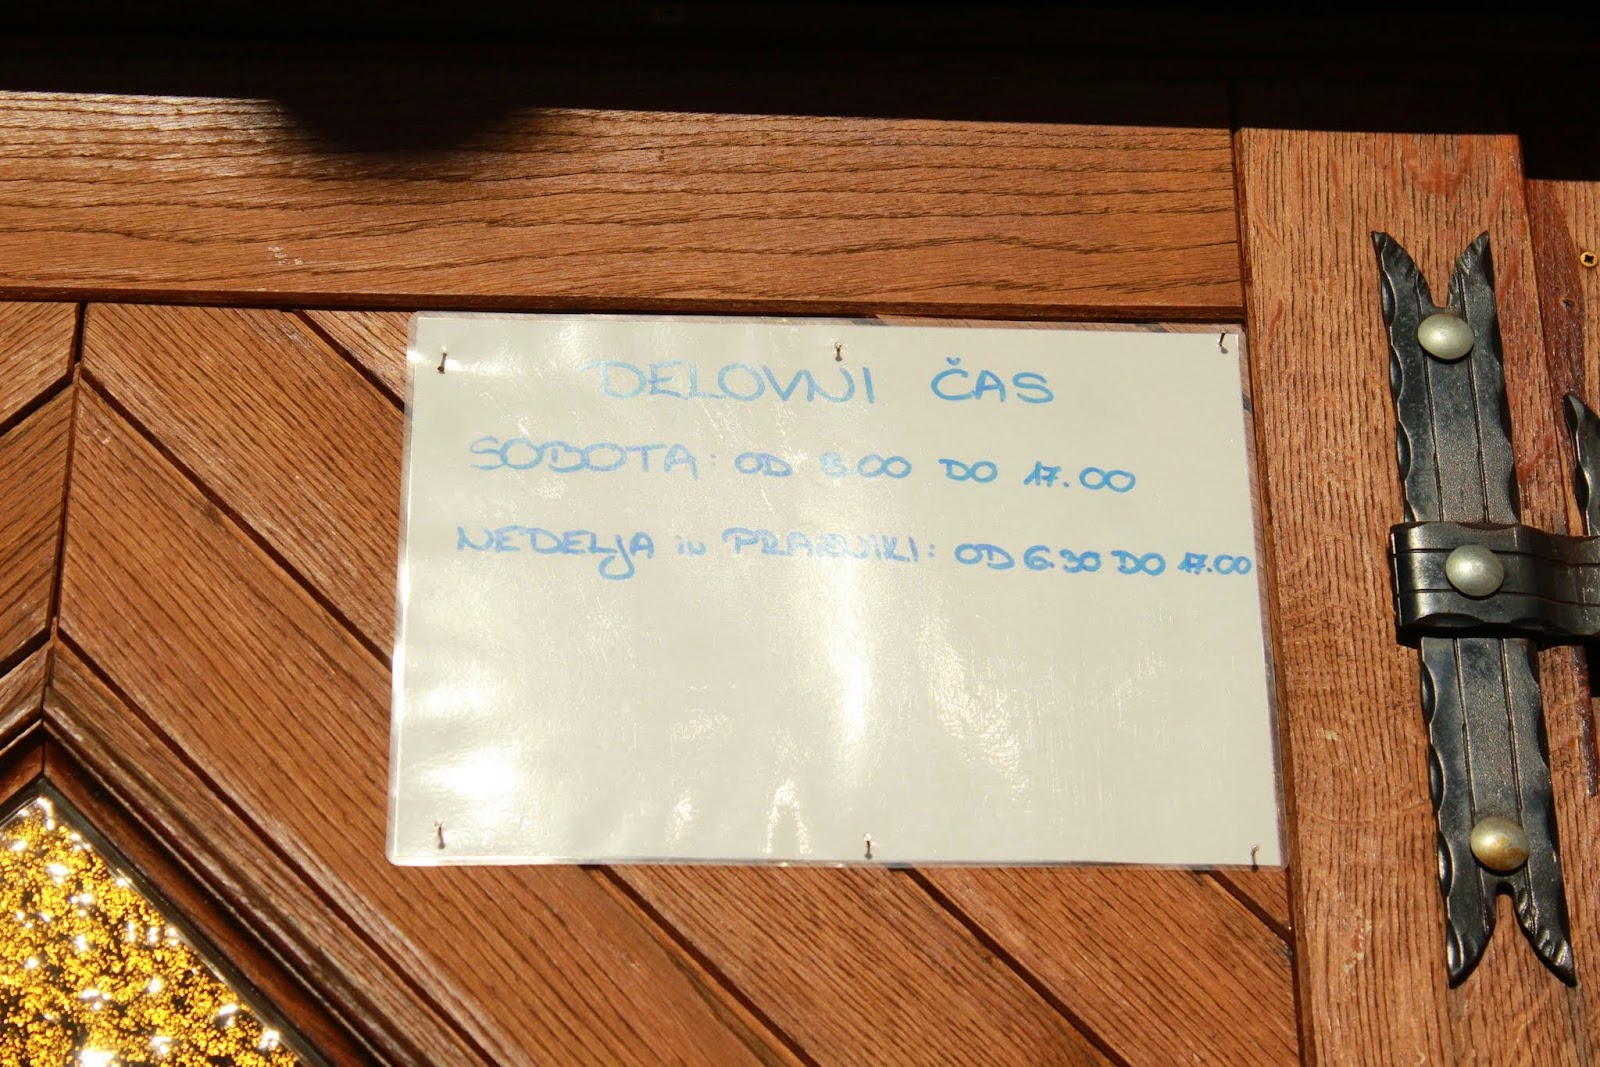 DELOVNI ČAS
SOBOTA: OD 8.00 DO 17.00
NEDELJA in PRAZNIKI: OD 6.30 DO 17.00